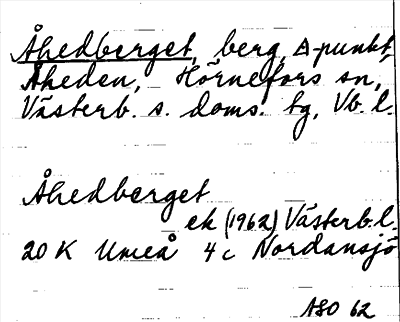 Åhedberget, berg, △-punkt,
Åheden, Hörnefors sn,
Västerb. s. doms. tg, Vb. l.
Åhedberget
ek (1962) Västerb. l.
20 K Umeå 4 c Nordansjö
ASO 62